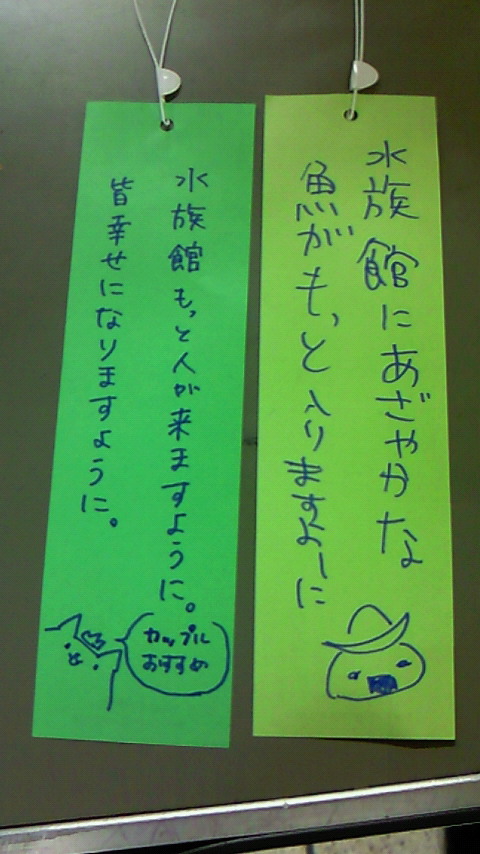 水族館にあざやかな
魚がもっと入りますよーに
水族館もっと人が来ますように。
皆幸せになりますように。
カップル
おすすめ